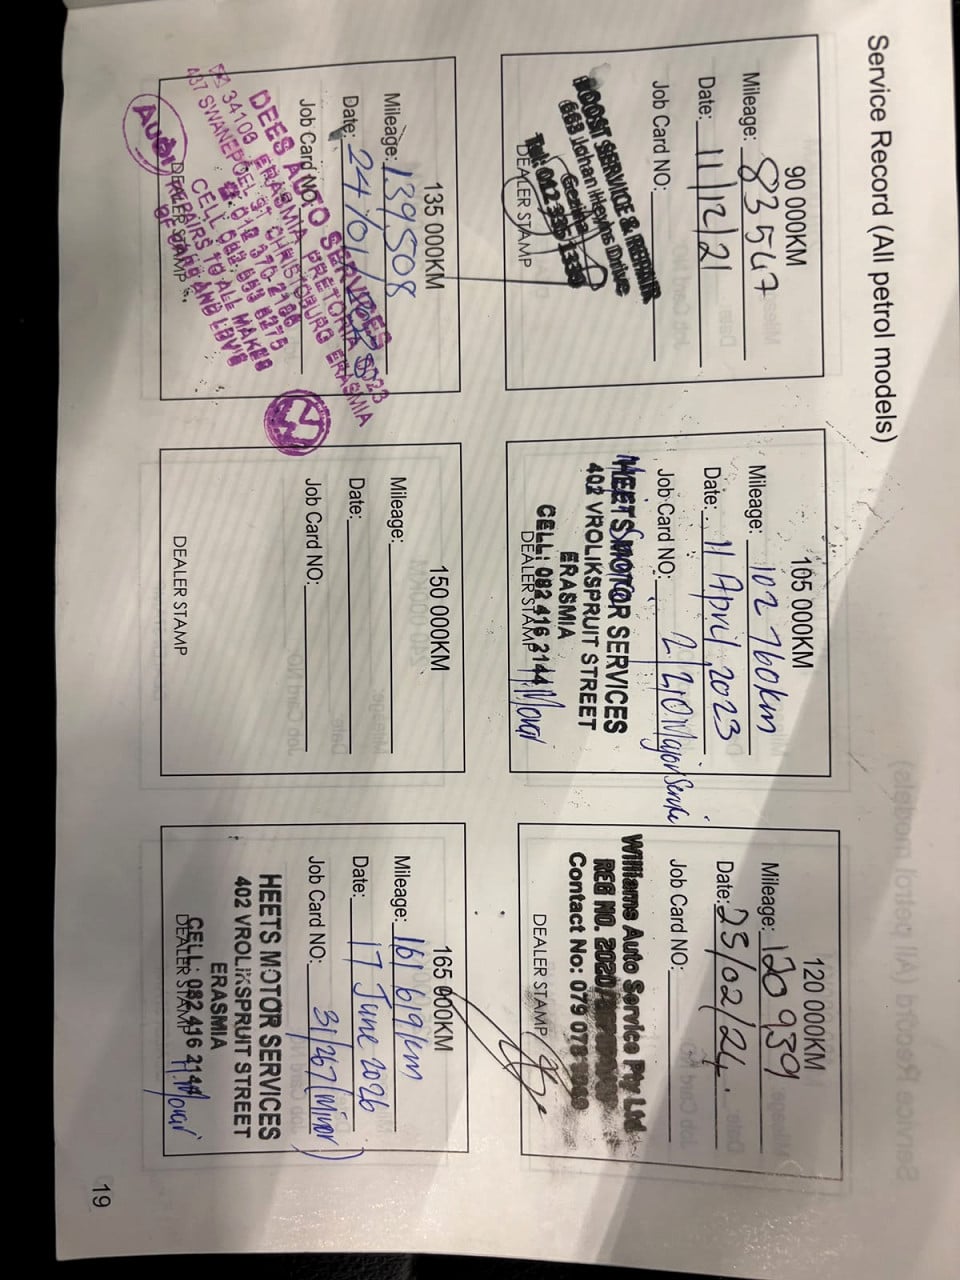 Service Record (All petrol models)
90 000KM
Mileage: 83547
Date: 11/12/21
Job Card NO:
BOOST SERVICE & REPAIR
DEALER STAMP
105 000KM
Mileage: 102 760km
Date: 11 April 2023
Job Card NO: Major Service
HEETS MOTOR SERVICES
402 VROLIKSPRUIT STREET
ERASMIA
CELL: 082 416 2144
DEALER STAMP
120 000KM
Mileage: 120 939
Date: 23/02/24.
Job Card NO:
Williams Auto Service Pty Ltd
REG NO. 2020/
Contact No: 079 078
DEALER STAMP
135 000KM
Mileage: 139,508
Date: 24/01/
Job Card NO:
DEES AUTO SERVICES
34106 ERASMIA PRETORIA
437 SWANEPOEL ST CHRISTOBURG ERASMIA
012 370-2196
CELL 082 653 6275
AUDI REPAIRS TO ALL MAKES
OF CARS AND LDVS
DEALER STAMP
150 000KM
Mileage:
Date:
Job Card NO:
DEALER STAMP
165 000KM
Mileage: 161 691km
Date: 17 June 2026
Job Card NO: 31267 (Minor)
HEETS MOTOR SERVICES
402 VROLIKSPRUIT STREET
ERASMIA
CELL: 082 416 2144
DEALER STAMP
19